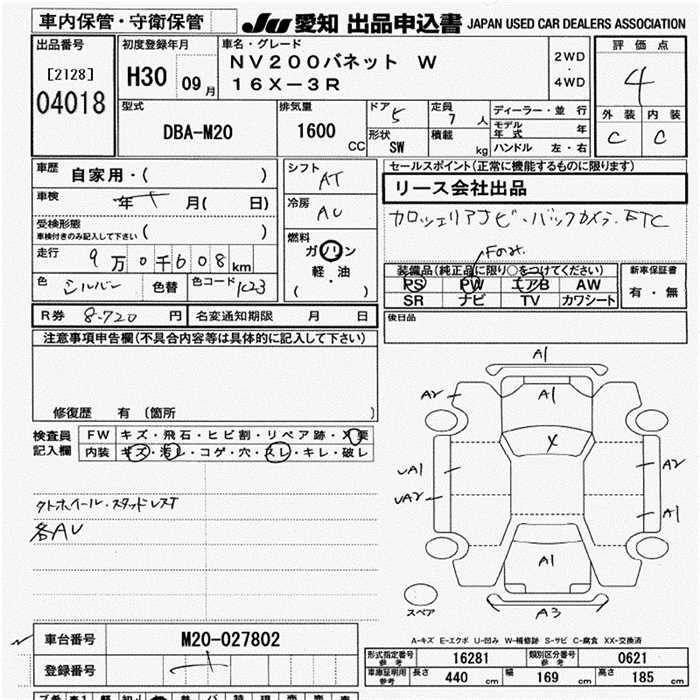 車内保管・守衛保管
JU 愛知 出品申込書 JAPAN USED CAR DEALERS ASSOCIATION
出品番号
[2128]
04018
初度登録年月
H30 09月
車名・グレード
NV200バネット W
16X-3R
2WD
・
4WD
評価点
4
外装 内装
C C
型式
DBA-M20
排気量
1600
CC
ドア 5
形状
SW
定員
7 人
積載
kg
ディーラー・並行
モデル年式 年
ハンドル 左・右
車歴
自家用・( )
車検
年 月( 日)
受検形態
車検付きのみ記入して下さい ( )
走行
9万0千608km
色 シルバー 色替 色コード K23
シフト
AT
冷房
AU
燃料
ガソリン
軽・油
( )
セールスポイント(正常に機能するものに限ります)
リース会社出品
カロッツェリアナビ・バックカメラ・ETC
Fのみ
装備品(純正品に限り○をつけてください)
PS PW エアB AW
SR ナビ TV カワシート
新車保証書
有・無
後日品
R券 8,720 円 名変通知期限 月 日
注意事項申告欄(不具合内容等は具体的に記入して下さい)
修復歴 有(箇所 )
検査員
記入欄
FW キズ・飛石・ヒビ割・リペア跡・X要
内装 キズ・汚レ・コゲ・穴・スレ・キレ・破レ
クトホイール・スタッドレスT
各AU
A1
A2
A1
X
UA1
UA2
A2
A1
A1
A3
スペア
A-キズ E-エクボ U-凹み W-補修跡 S-サビ C-腐食 XX-交換済
車台番号 M20-027802
登録番号
形式指定番号
参考
16281
類別区分番号
参考
0621
車庫証明用
参考
長さ 440 cm 幅 169 cm 高さ 185 cm